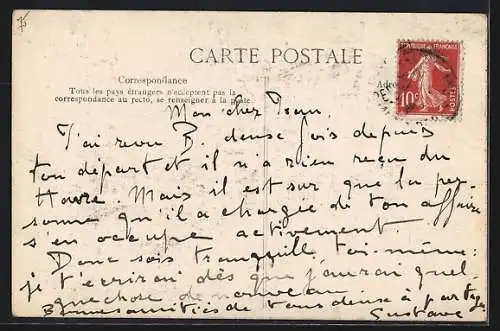 CARTE POSTALE
Correspondance
Tous les pays étrangers n'acceptent pas la
correspondance au recto, se renseigner à la poste.
RÉPUBLIQUE FRANÇAISE
10c
POSTES
Mon cher
J'ai revu B. deux fois depuis
ton départ et il n'a rien reçu du
Havre Mais il est sur que la per-
sonne qu'il a chargée de ton affaire
s'en occupe activement.
Donc sois tranquille toi-même:
je t'écrirai dès que j'aurai quel-
que chose de nouveau
Bonnes amitiés de tous deux à partager
Gustave